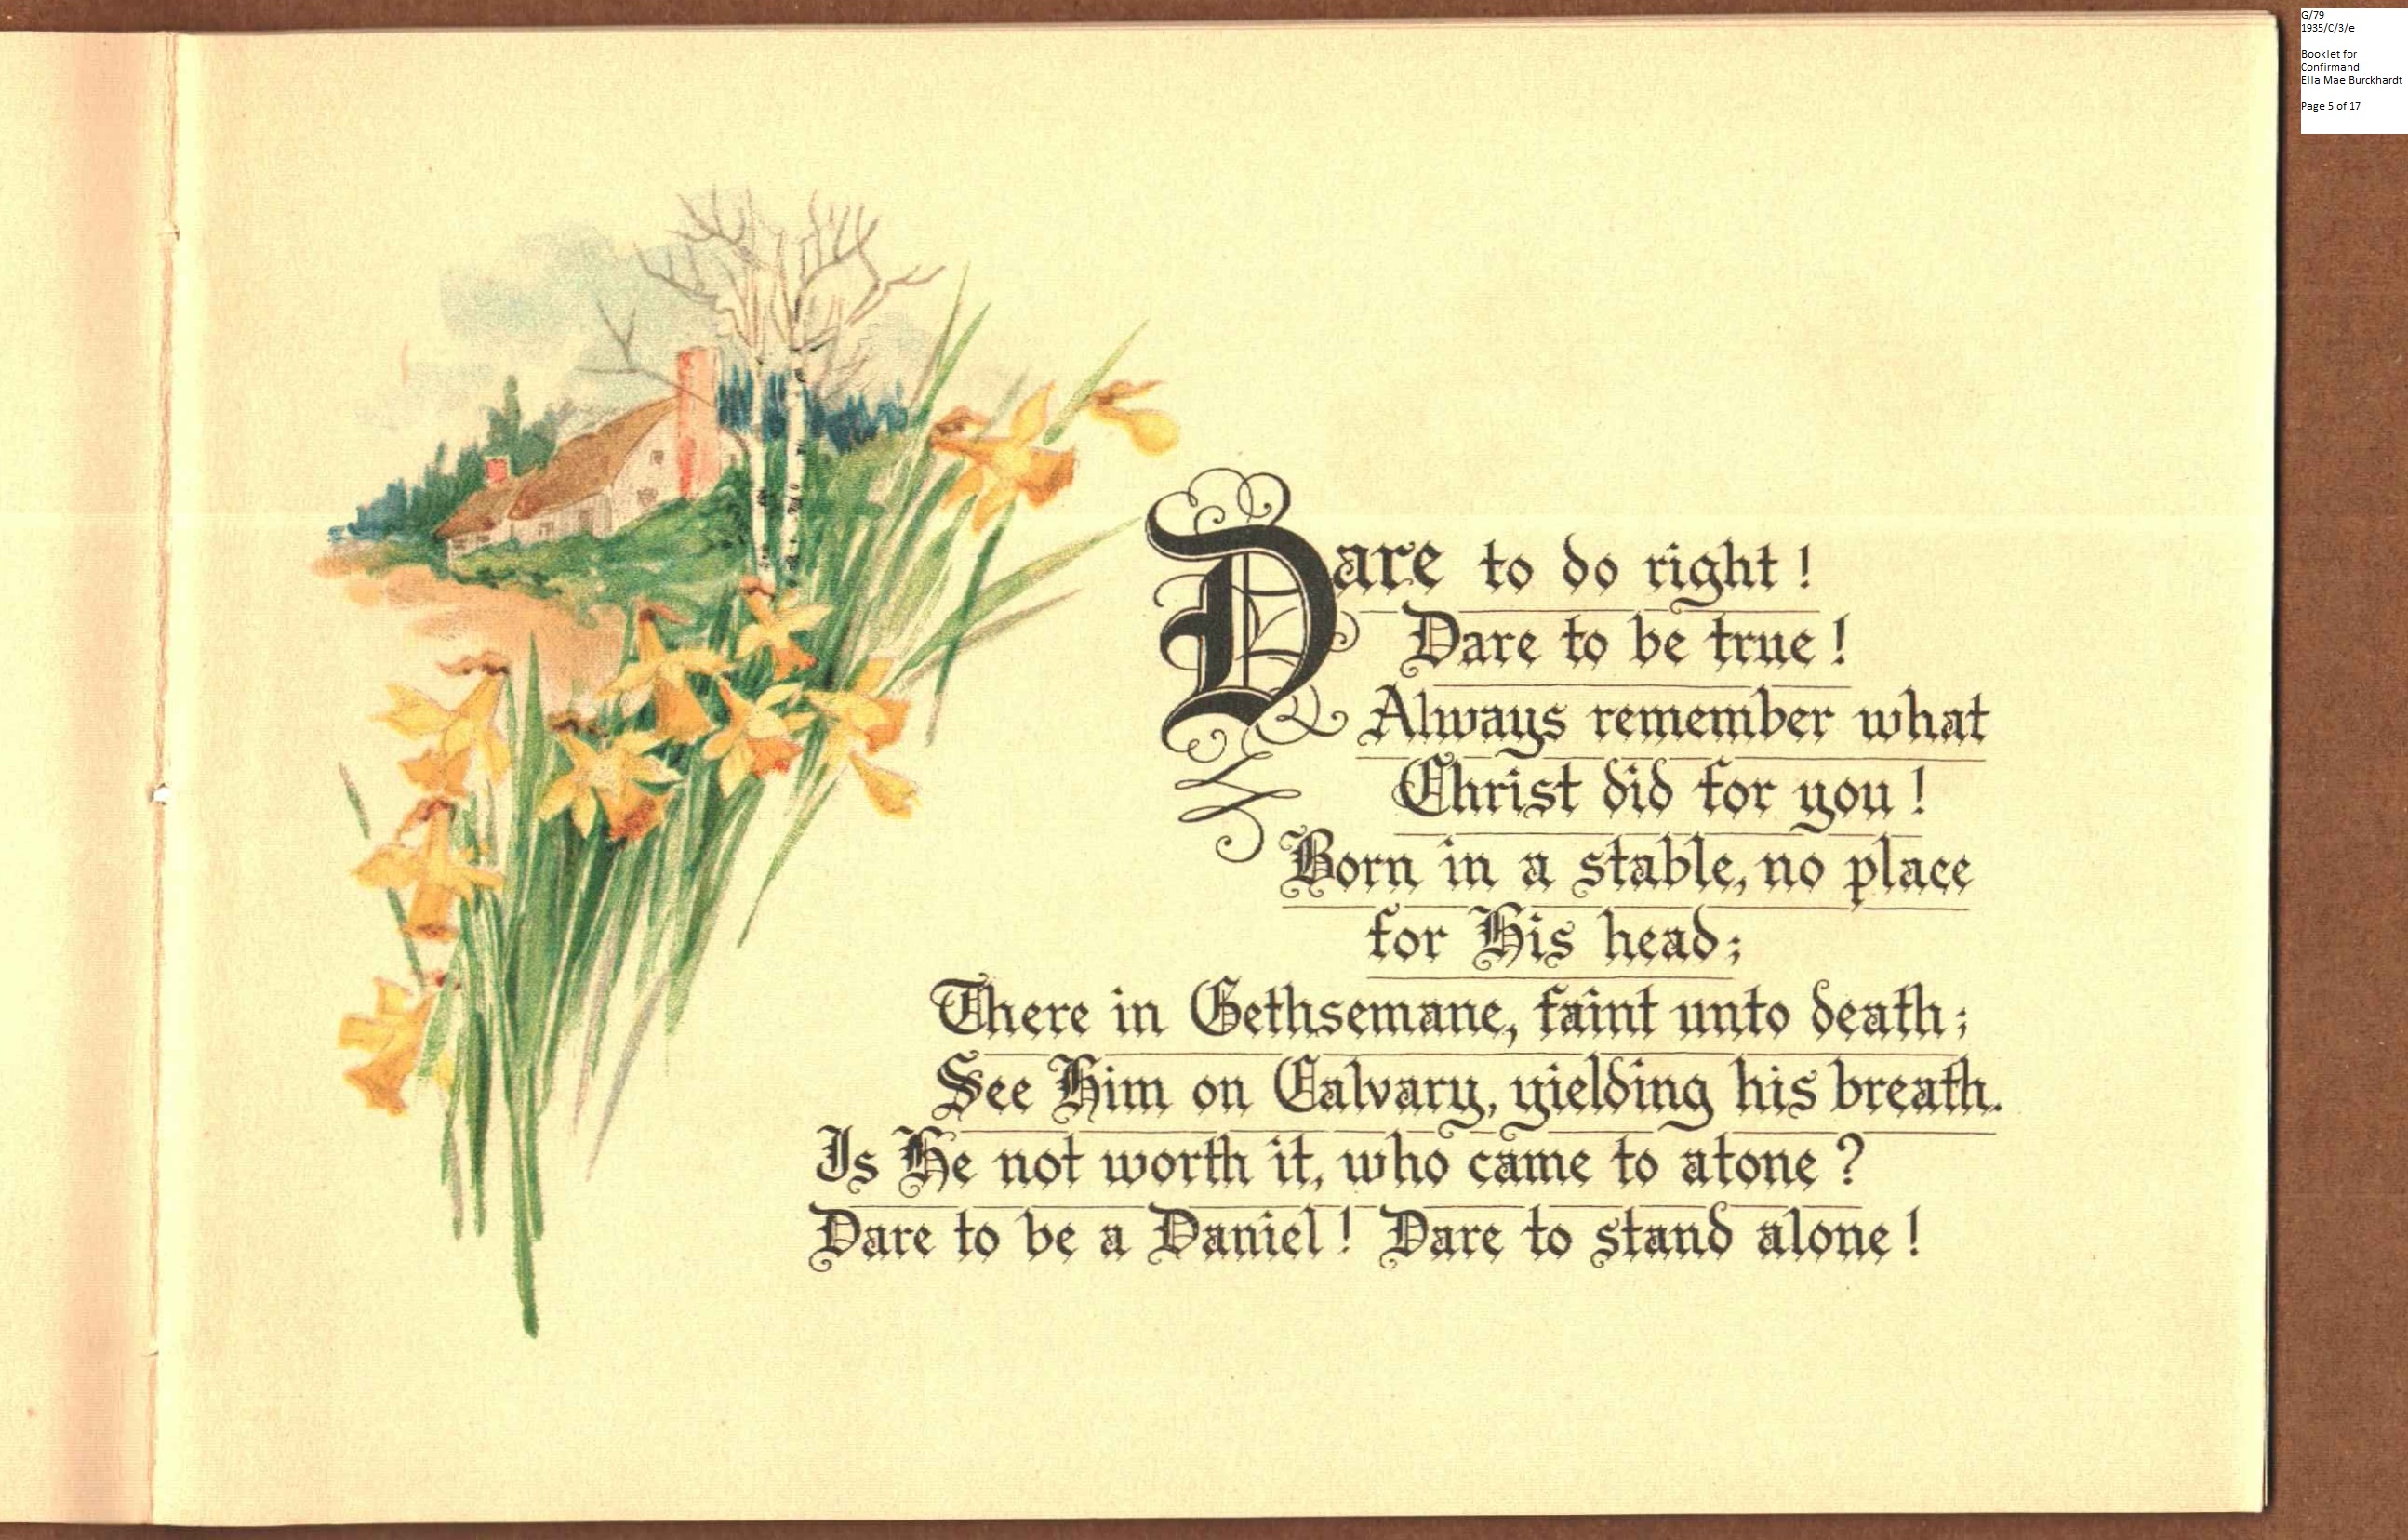 Dare to do right!
Dare to be true!
Always remember what
Christ did for you!
Born in a stable, no place
for His head;
There in Gethsemane, faint unto death;
See Him on Calvary, yielding his breath.
Is He not worth it, who came to atone?
Dare to be a Daniel! Dare to stand alone!
G/79
1935/C/3/e
Booklet for
Confirmand
Ella Mae Burckhardt
Page 5 of 17